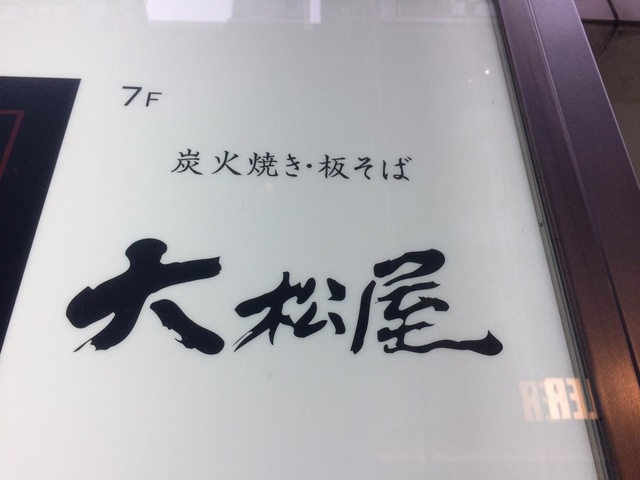 7F
炭火焼き・板そば
大松屋